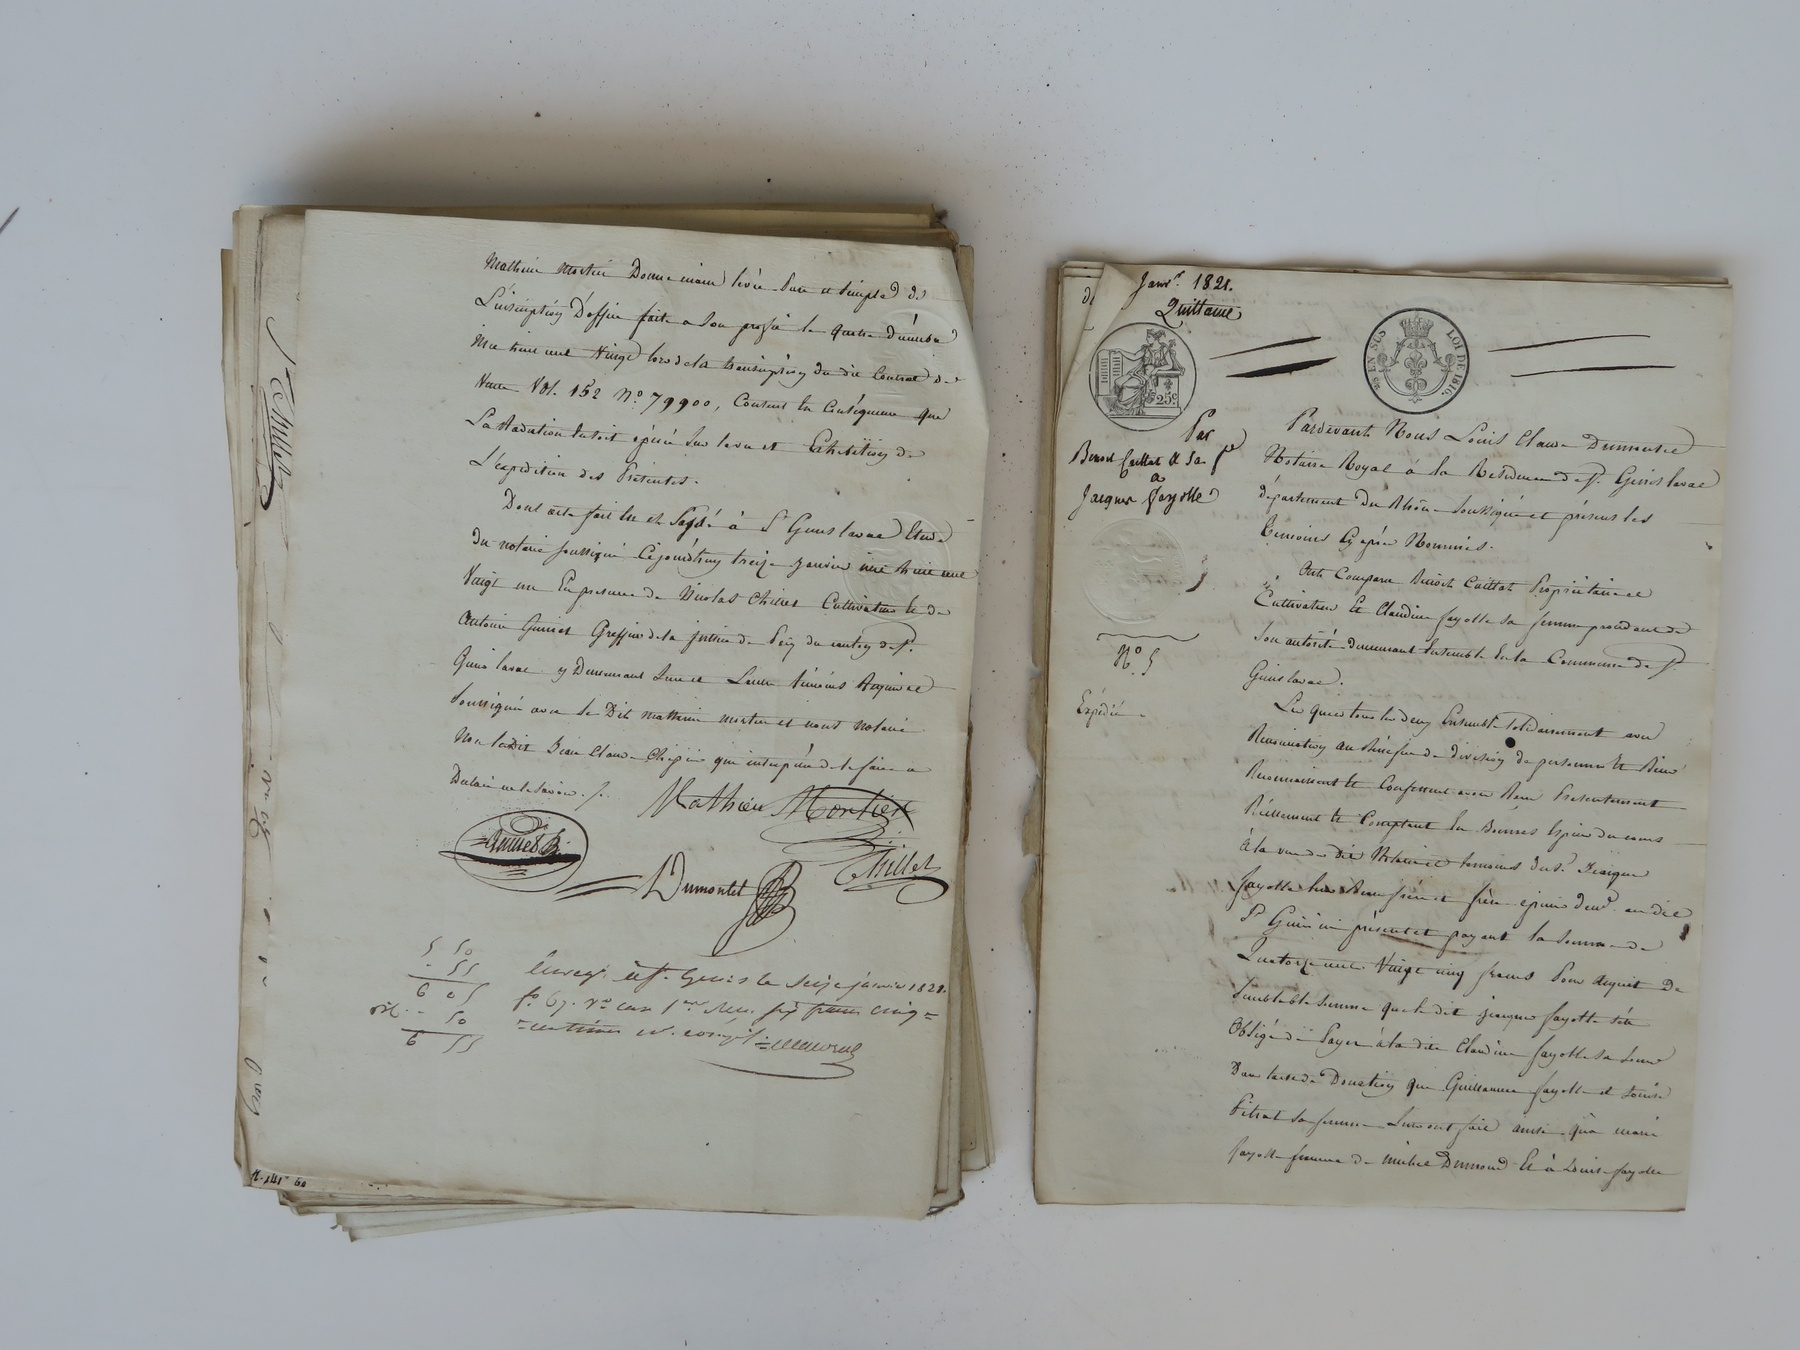 Mathieu Mortier Donne main levée Pure et Simple de
L'inscription D'office faite a Son profit le quinze Décembre
Mil huit cent Vingt lors de la transcription du dit Contrat de
Vente Vol. 152 N.º 79900, Consent En Conséquence que
La Radiation En soit opérée Sur le vu et Exhibition de
L'expedition des Présentes.
Dont acte fait lu et Passé à St Genis laval Etude
du notaire soussigné Cejourd'huy treize janvier mil huit cent
Vingt un En presence de Nicolas Chillet Cultivateur Et de
Antoine Greffier de la justice de Paix du canton de St.
Genis laval y Demeurant Tous et Leurs témoins Requis et
Soussignés avec le Dit Mathieu mortier et nous notaire
Non ledit Jean Claude qui interpellé de le faire a
Déclaré ne le Savoir ./.
Mathieu Mortier
Chillet
Dumortet
5 50
. 55
6 05
. 50
6 55
Enreg. à St. Genis le Seize janvier 1821.
fo. 67. Vo. cas 1er Reçu six francs cinq=
=centimes
Janvr. 1821.
Quittance
45 EN SUS
LOI DE 1816.
25c.
Par
Benoit Cuillat & Sa fe
a
Jacques Fayolle
N.º 5
Expédié
Pardevant Nous Louis Claude Dumortet
Notaire Royal à la Résidence de St. Genis laval
département Du Rhône Soussigné et présens les
Témoins Cy après Nommés.
Ont Comparu Benoit Cuillat Propriétaire et
Cultivateur Et Claudine fayolle sa femme procédant de
Son autorité demeurant Ensemble En la Commune de St.
Genis laval.
Lesquels tous les deux Ensemble Solidairement avec
Renonciation au Bénéfice de division de personnes Et Biens
Reconnaissent Et Confessent avoir Reçu Présentement
Réellement Et Comptant En Bonnes Espèces du cours
à la vue du Dit Notaire et témoins du Sr. Jacques
fayolle leur Beau frère et frère épicier demt. au dit
St Genis ici présent et payant la Somme de
Quatorze cent Vingt cinq francs Pour acquit De
Semblable Somme que le dit jacques fayolle s'est
Obligé de Payer à la dite Claudine fayolle sa Soeur
Dans l'acte de Donation que Guillaume fayolle et Louise
Pitrat sa femme Leur ont fait ainsi qu'à marie
fayolle femme de michel Dumond Et à Louise fayolle